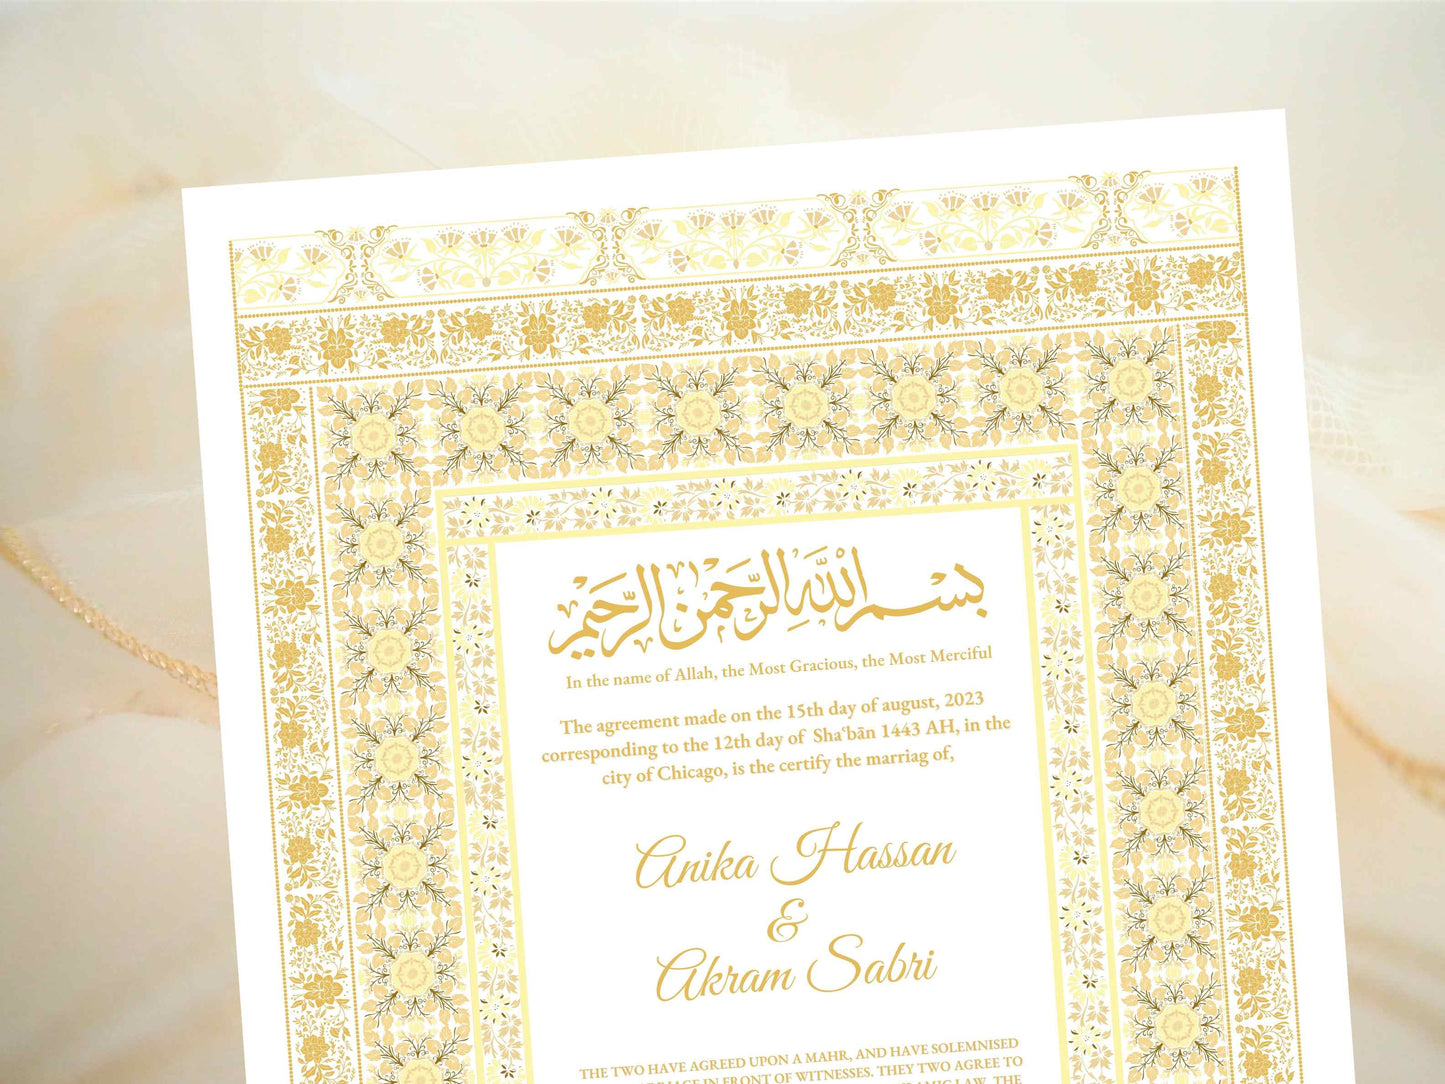 بِسْمِ اللَّهِ الرَّحْمَنِ الرَّحِيمِ
In the name of Allah, the Most Gracious, the Most Merciful
The agreement made on the 15th day of august, 2023
corresponding to the 12th day of Shaʿbān 1443 AH, in the
city of Chicago, is the certify the marriag of,
Anika Hassan
&
Akram Sabri
THE TWO HAVE AGREED UPON A MAHR, AND HAVE SOLEMNISED
IN FRONT OF WITNESSES. THEY TWO AGREE TO
LAW. THE